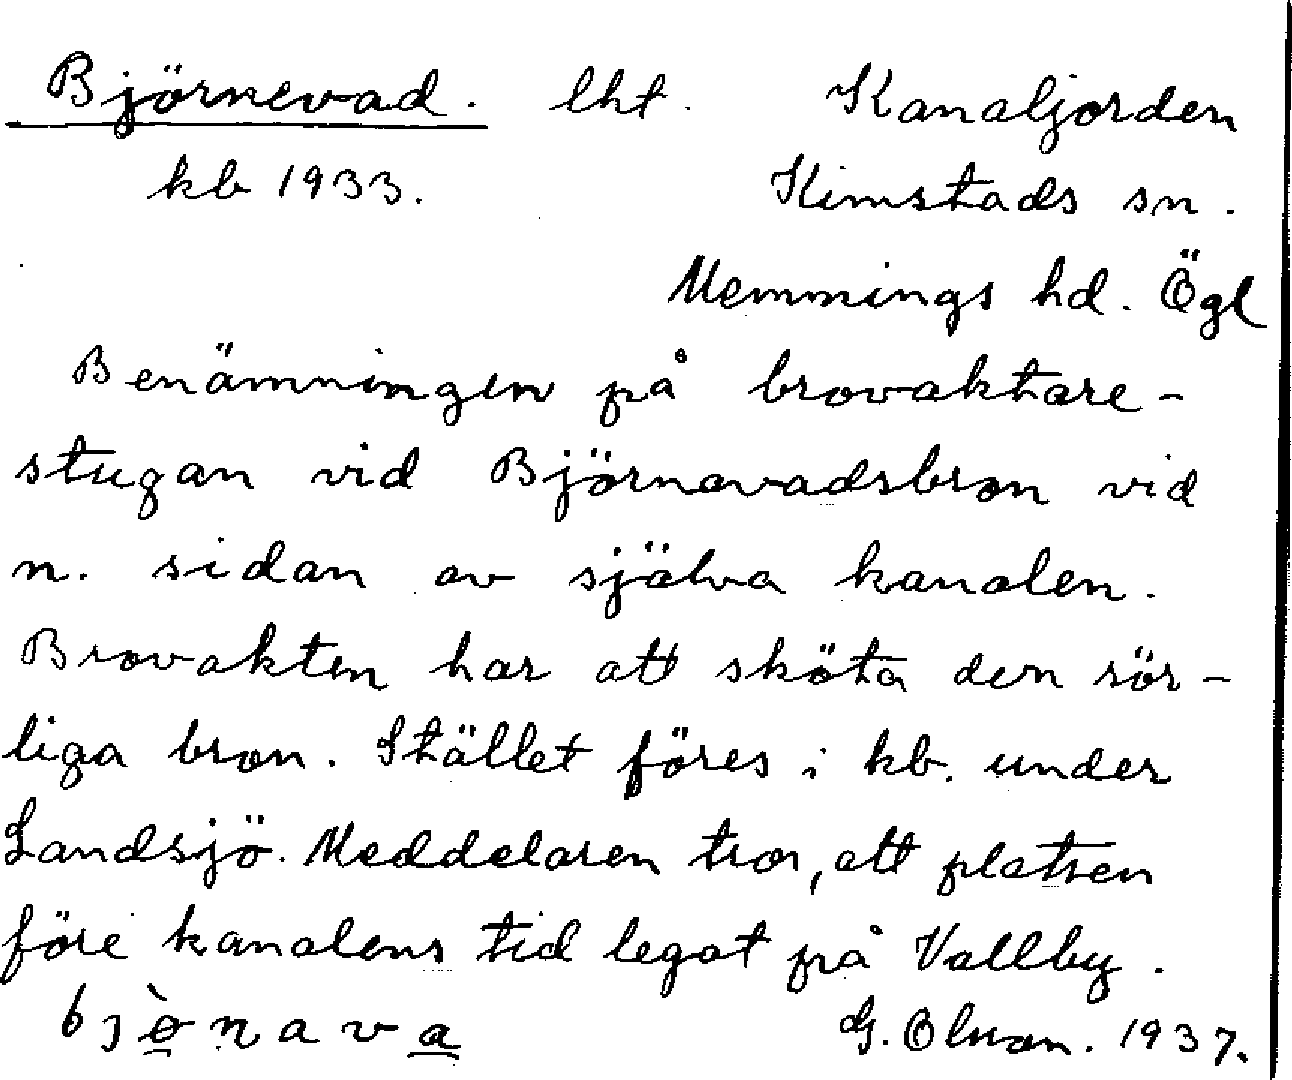 Björnevad. lht. Kanaljorden
kb 1933. Kimstads sn.
Memmings hd. Ögl
Benämningen på brovaktare-
stugan vid Björnavadsbron vid
n. sidan av själva kanalen.
Brovakten har att sköta den rör-
liga bron. Stället föres i kb. under
Landsjö. Meddelaren tror, att platsen
före kanalens tid legat på Vallby.
G. Olson. 1937.